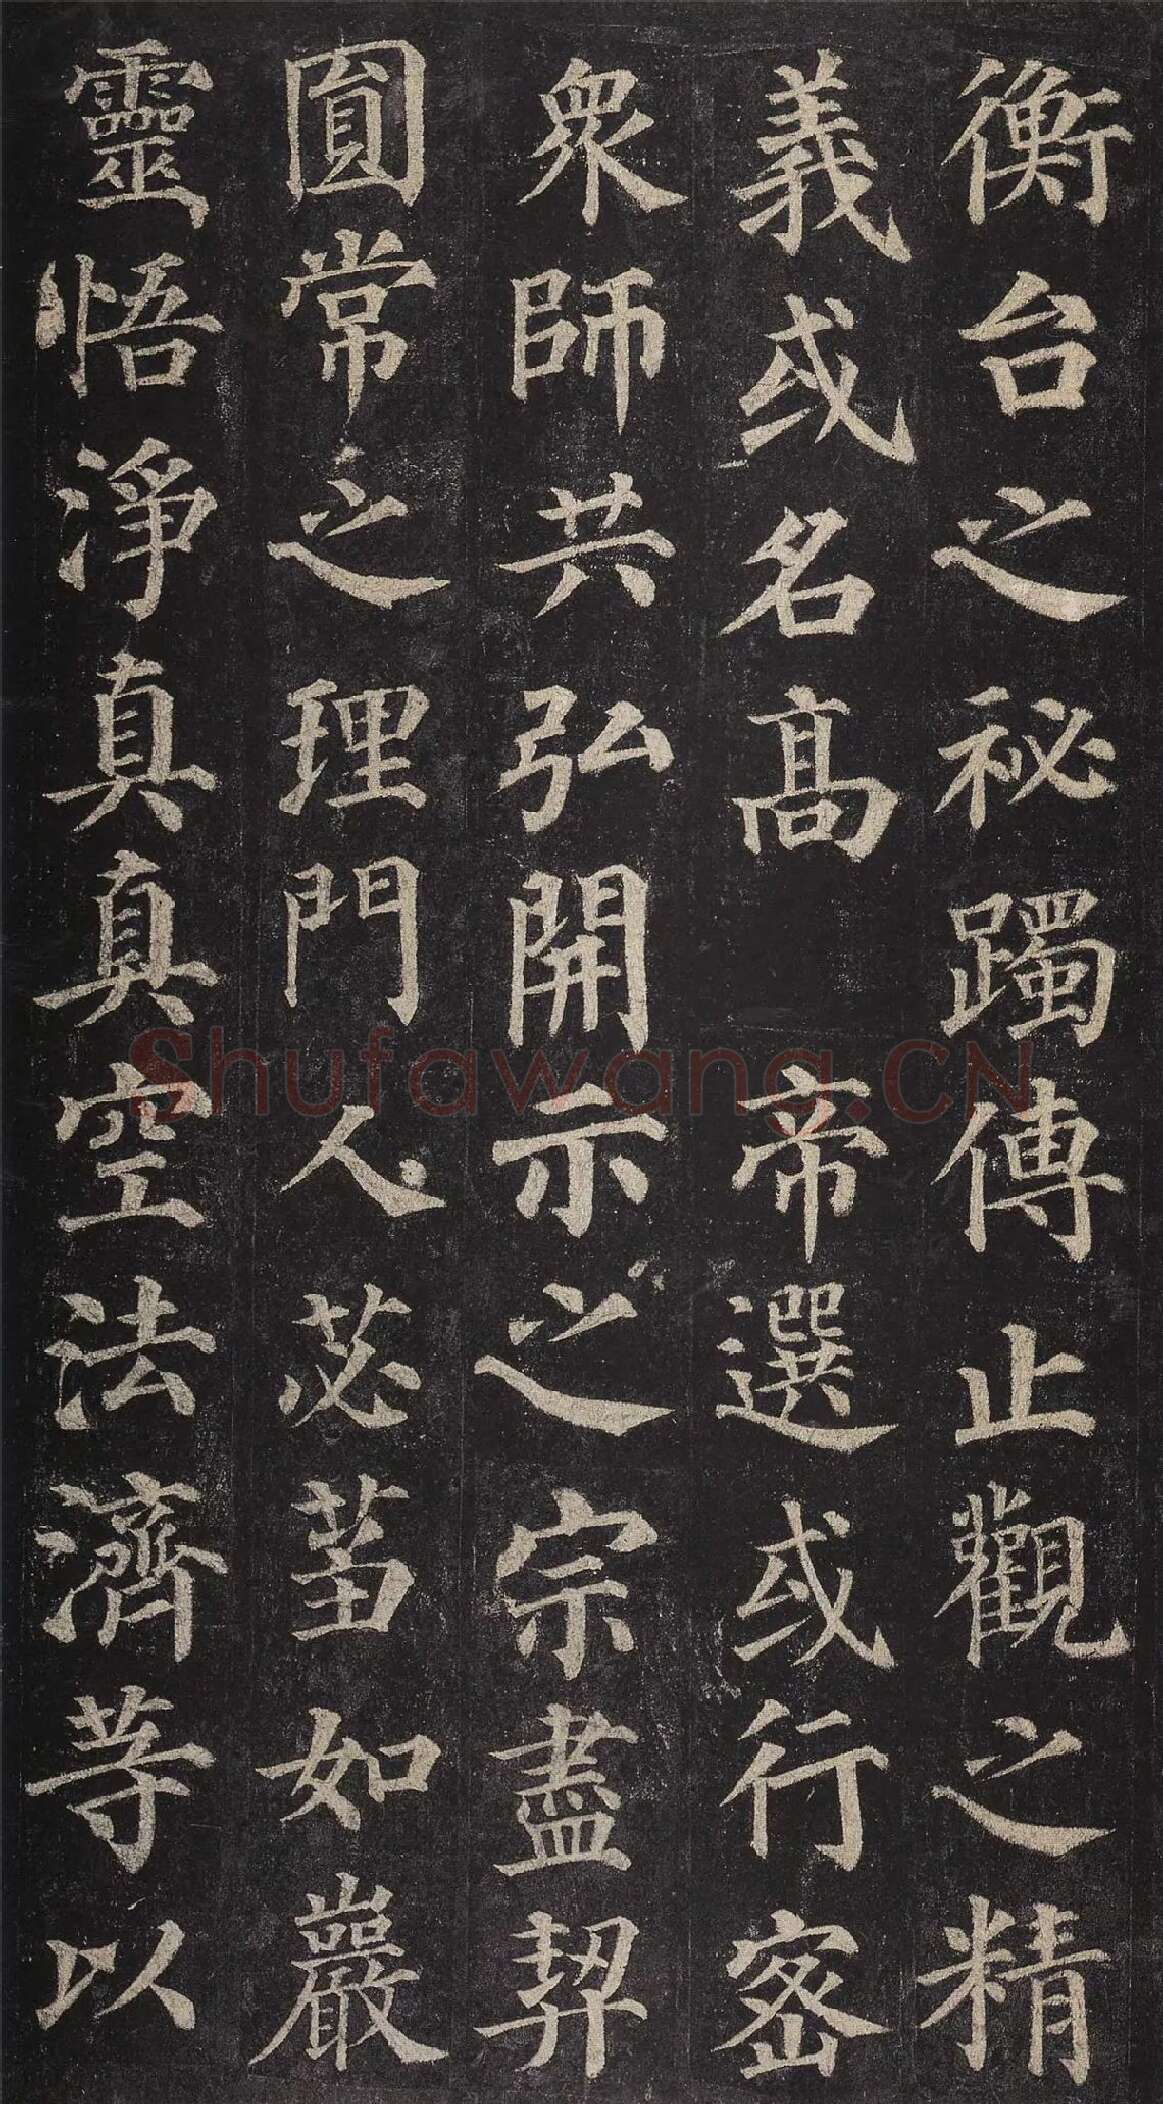 衡台之祕躅傳止觀之精
義或名高 帝選或行密
衆師共弘開示之宗盡契
圓常之理門人苾芻如巖
靈悟淨真真空法濟等以
Shufawang.CN